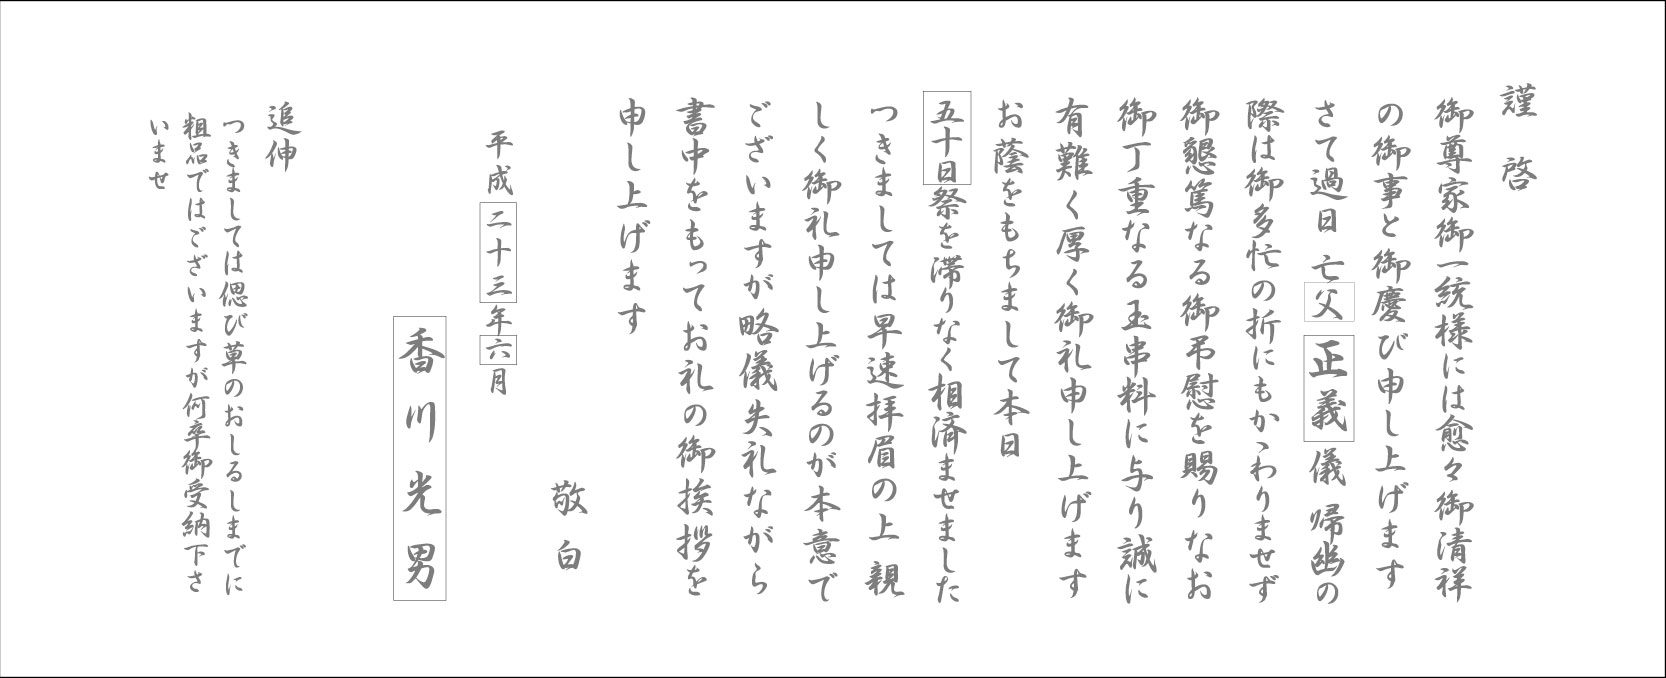 謹啓
御尊家御一統様には愈々御清祥
の御事と御慶び申し上げます
さて過日 亡父 正義 儀 帰幽の
際は御多忙の折にもかゝわりませず
御懇篤なる御弔慰を賜りなお
御丁重なる玉串料に与り誠に
有難く厚く御礼申し上げます
お蔭をもちまして本日
五十日祭を滞りなく相済ませました
つきましては早速拝眉の上 親
しく御礼申し上げるのが本意で
ございますが略儀失礼ながら
書中をもってお礼の御挨拶を
申し上げます
敬白
平成二十三年六月
香川光男
追伸
つきましては偲び草のおしるしまでに
粗品ではございますが何卒御受納下さ
いませ